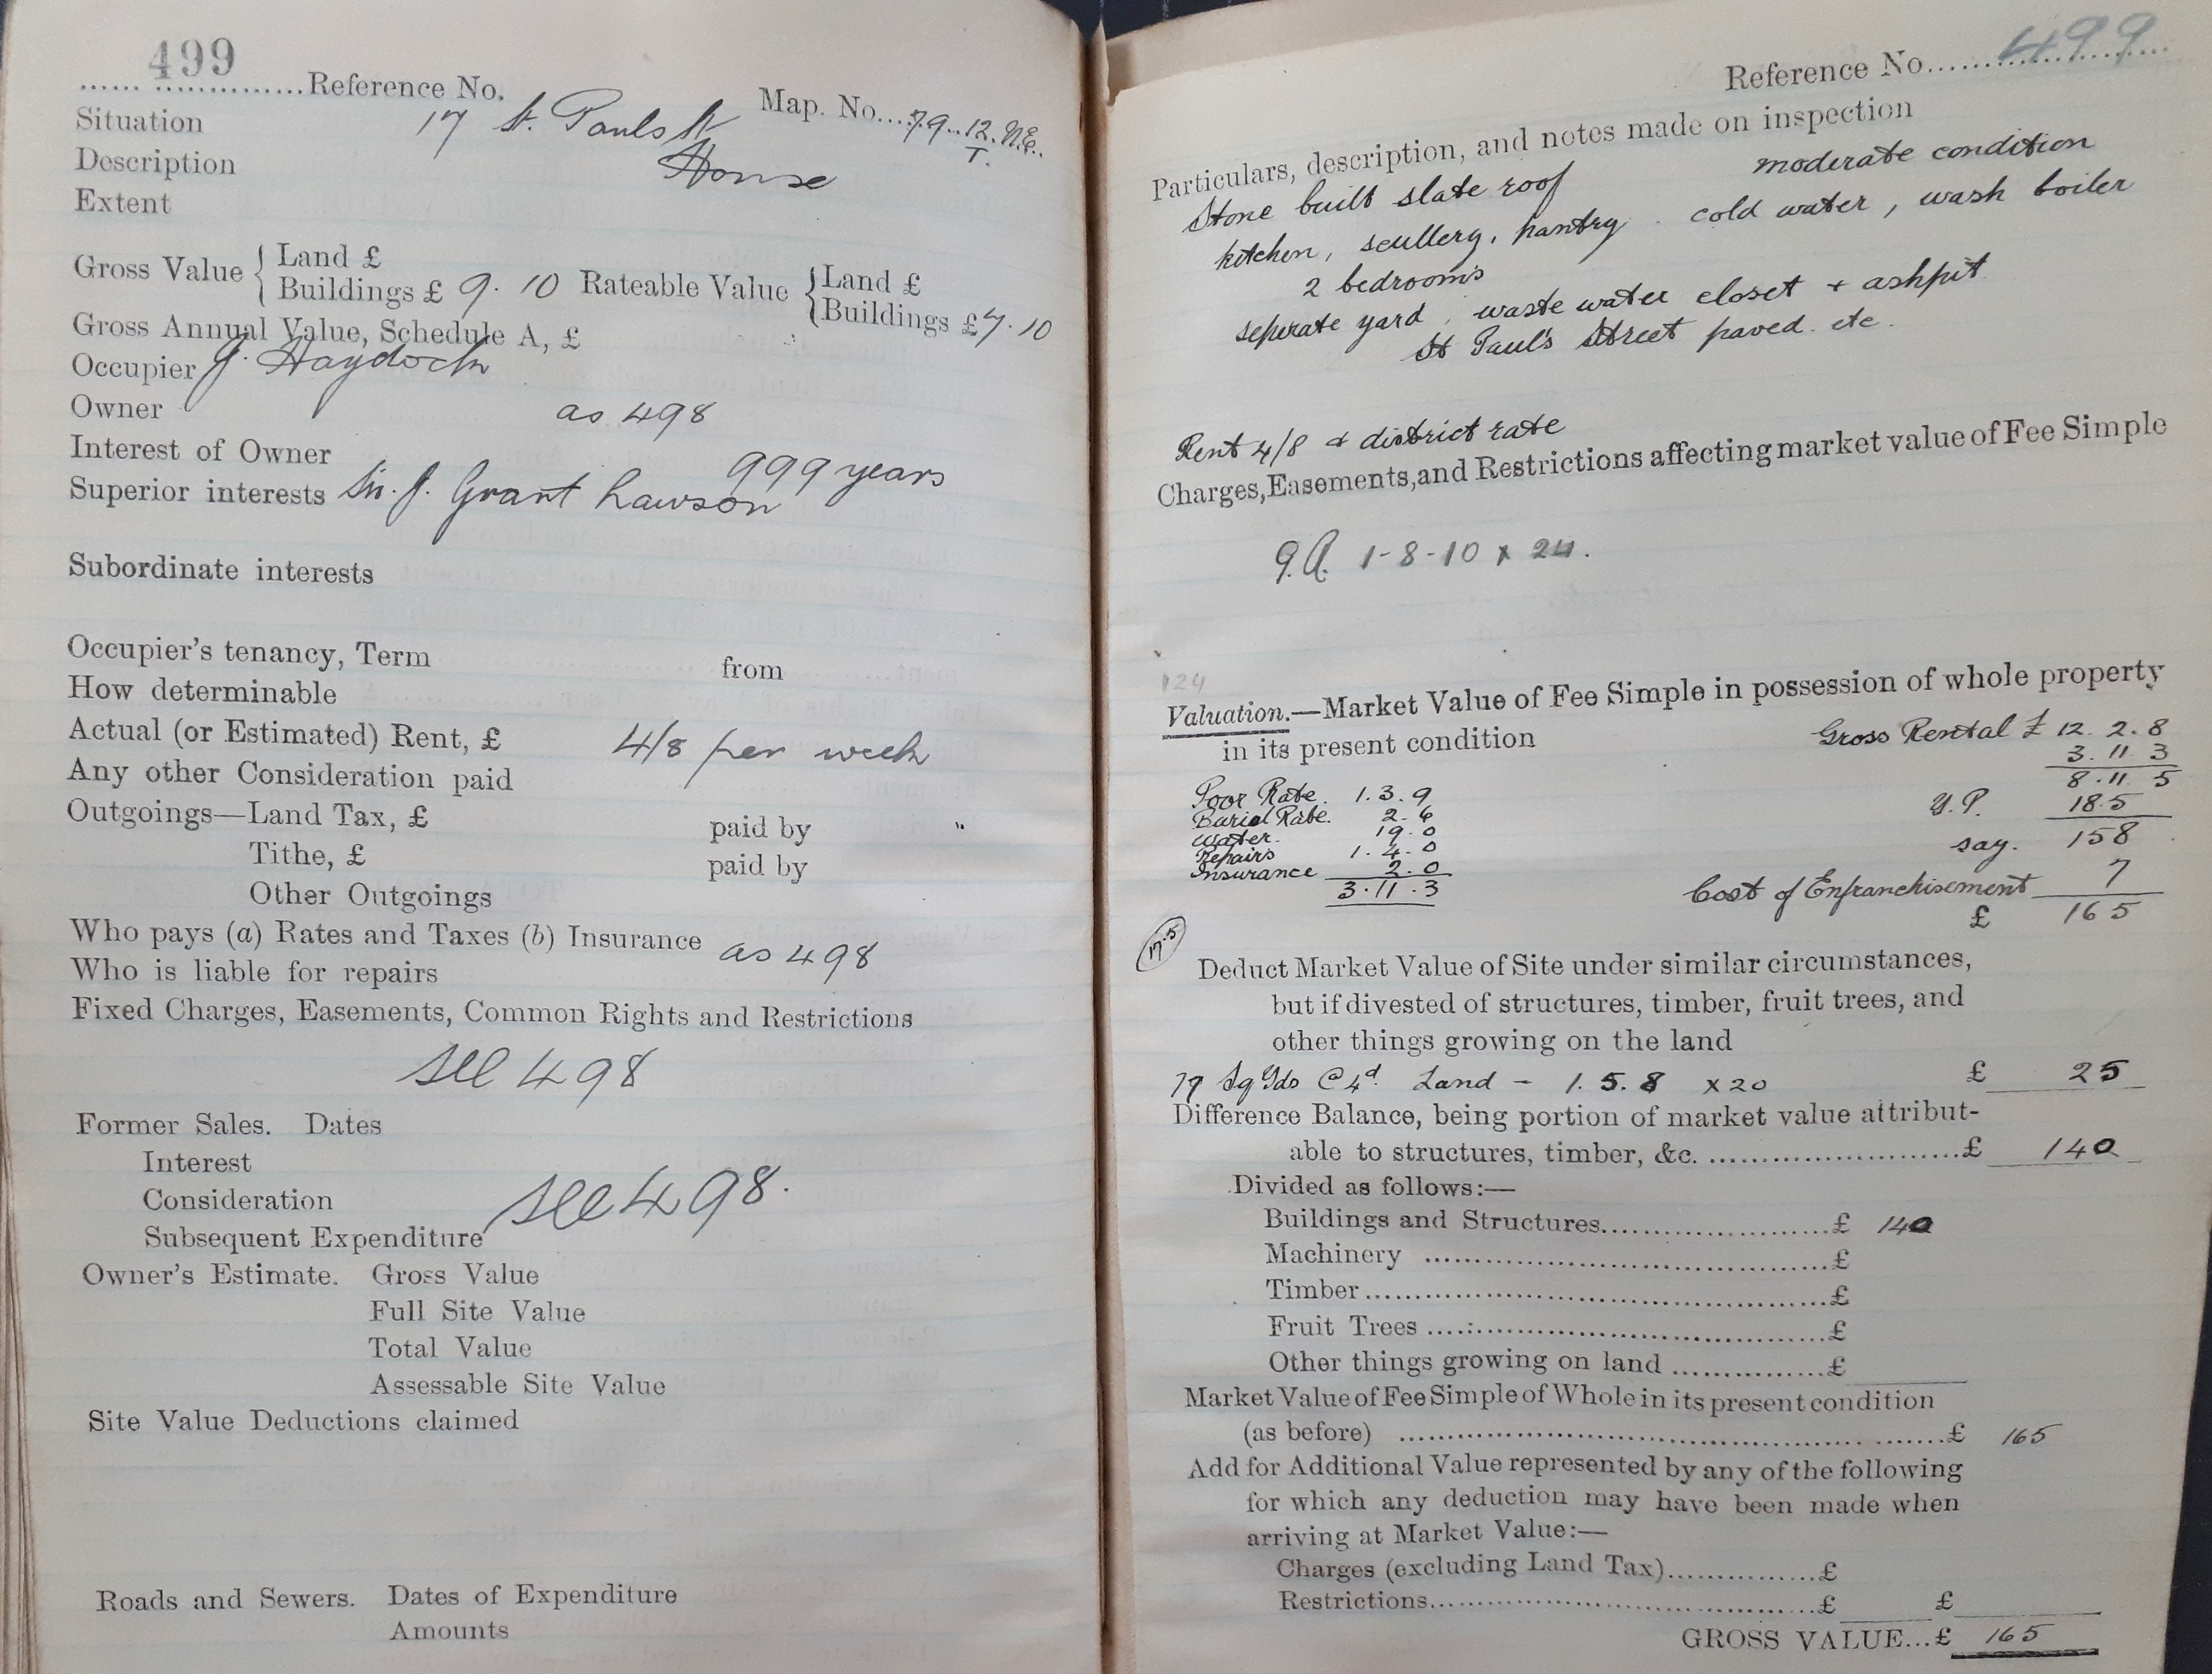 499
Reference No.
Map. No. 79.12.N.E.
T.
Situation 17 St. Pauls St
Description House
Extent
Gross Value { Land £
Buildings £ 9.10 Rateable Value { Land £
Buildings £ 7.10
Gross Annual Value, Schedule A, £
Occupier J. Haydock
Owner as 498
Interest of Owner 999 years
Superior interests Sir. J. Grant Lawson
Subordinate interests
Occupier's tenancy, Term from
How determinable
Actual (or Estimated) Rent, £ 4/8 per week
Any other Consideration paid
Outgoings—Land Tax, £ paid by "
Tithe, £ paid by
Other Outgoings
Who pays (a) Rates and Taxes (b) Insurance as 498
Who is liable for repairs
Fixed Charges, Easements, Common Rights and Restrictions
see 498
Former Sales. Dates
Interest
Consideration see 498.
Subsequent Expenditure
Owner's Estimate. Gross Value
Full Site Value
Total Value
Assessable Site Value
Site Value Deductions claimed
Roads and Sewers. Dates of Expenditure
Amounts
Reference No. 499
Particulars, description, and notes made on inspection
Stone built slate roof moderate condition
kitchen, scullery, pantry. cold water, wash boiler
2 bedrooms
seperate yard, waste water closet + ashpit
St Paul's Street paved. etc.
Rent 4/8 & district rate
Charges, Easements, and Restrictions affecting market value of Fee Simple
G.R. 1-8-10 x 24.
124
Valuation.—Market Value of Fee Simple in possession of whole property
in its present condition Gross Rental £ 12. 2. 8
3. 11 3
8. 11. 5
Poor Rate. 1. 3. 9
Y.P. 18.5
Burial Rate. 2. 6
Water. 19. 0
say. 158
Repairs 1. 4. 0
Insurance 2. 0
7
3. 11. 3
Cost of Enfranchisement
£ 165
17.5
Deduct Market Value of Site under similar circumstances,
but if divested of structures, timber, fruit trees, and
other things growing on the land
77 Sq Yds @ 4d. Land - 1. 5. 8 x 20 £ 25
Difference Balance, being portion of market value attribut-
able to structures, timber, &c. £ 140
Divided as follows:—
Buildings and Structures £ 140
Machinery £
Timber £
Fruit Trees £
Other things growing on land £
Market Value of Fee Simple of Whole in its present condition
(as before) £ 165
Add for Additional Value represented by any of the following
for which any deduction may have been made when
arriving at Market Value:—
Charges (excluding Land Tax) £
Restrictions £ £
GROSS VALUE...£ 165